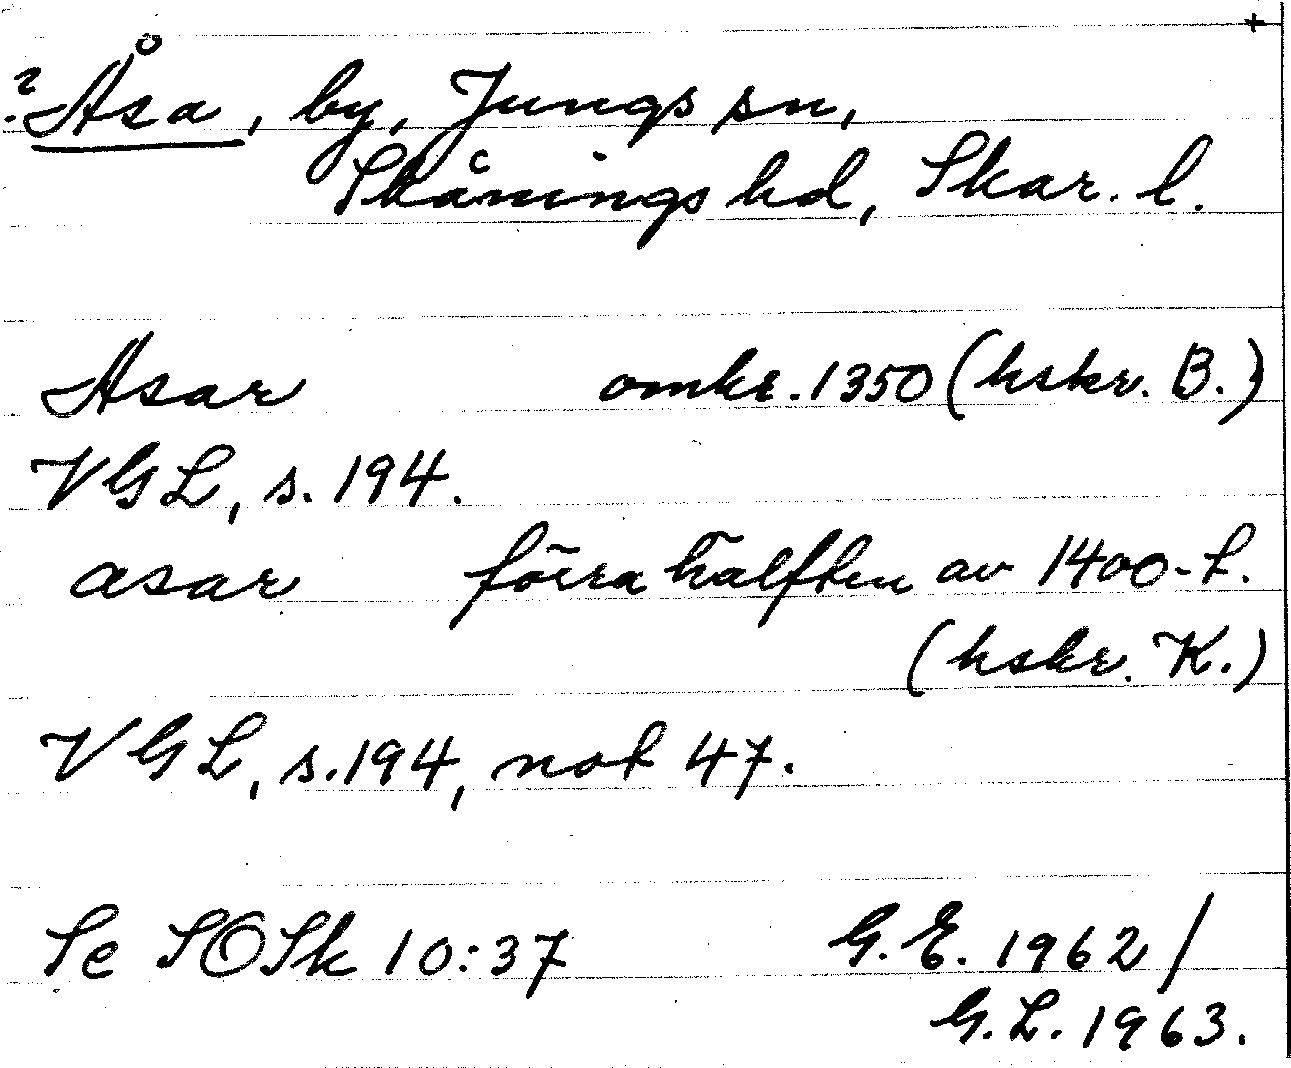 +
? Åsa, by, Jungs sn,
Skånings hd, Skar. l.
Asar omkr. 1350 (hskr. B.)
VGL, s. 194.
asar förra hälften av 1400-t.
(hskr. K.)
VGL, s. 194, not 47.
Se SOSk 10:37 G.E. 1962/
G.L. 1963.